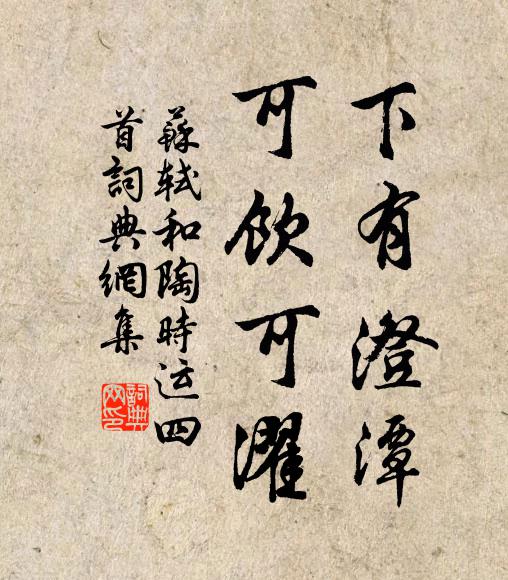 下有澄潭
可飲可濯
蘇軾和陶時运四
首詞典網集
詞典網印